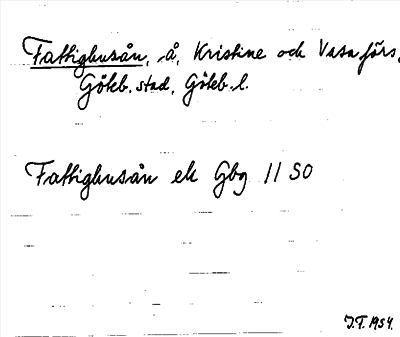 Fattighusån, å, Kristine och Vasa förs,
Göteb. stad, Göteb. l.
Fattighusån ek Gbg 11 SO
J.T. 1954.